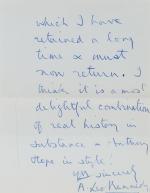 which I have
retained a long
time & must
now return. I
think it is a most
delightful combination
of real history in
substance & Anthony
Hope in style!
yrs sincerely
A.